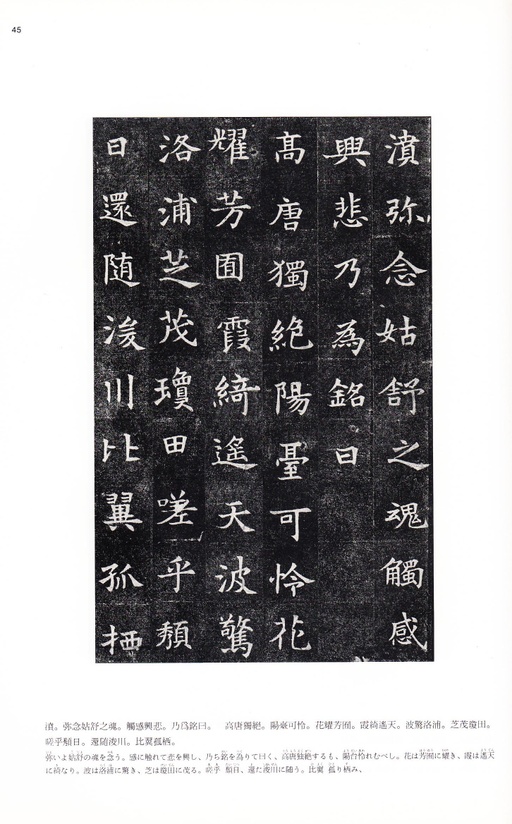 45
濆弥念姑舒之魂觸感
興悲乃為銘曰
髙唐獨絶陽臺可怜花
耀芳囿霞綺遙天波驚
洛浦芝茂瓊田嗟乎頺
日還随浚川比翼孤栖
濆。弥念姑舒之魂。觸感興悲。乃爲銘曰。　高唐獨絶。陽臺可怜。花耀芳囿。霞綺遙天。波驚洛浦。芝茂瓊田。
嗟乎頺日。還随浚川。比翼孤栖。
弥いよ姑舒の魂を念う。感に触れて悲を興し、乃ち銘を為りて曰く、高唐独絶するも、陽台怜れむべし。花は芳囿に耀き、霞は遙天
に綺なり。波は洛浦に驚き、芝は瓊田に茂る。嗟乎 頺日、還た浚川に随う。比翼 孤り栖み、